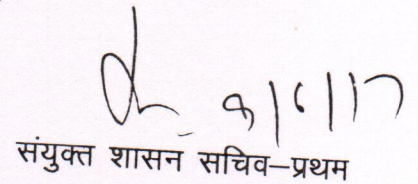 9/6/17
संयुक्त शासन सचिव–प्रथम